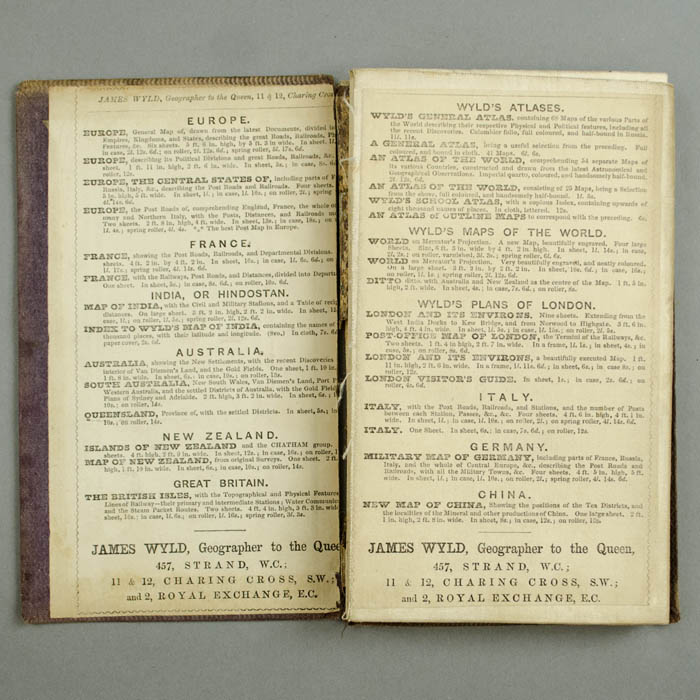 JAMES WYLD, Geographer to the Queen, 11 & 12, Charing Cros
EUROPE.
EUROPE, General Map of, drawn from the latest Documents, divided in
Empires, Kingdoms, and States, describing the great Roads, Railroads, Ph
Features, &c. Six sheets. 5 ft. 6 in. high, by 5 ft. 3 in wide. In sheet,
in case, 2l. 12s. 6d.; on roller, 2l. 12s. 6d.; spring roller, 5l. 17s. 6d.
EUROPE, describing its Political Divisions and great Roads, Railroads, &c.
sheet. 1 ft. 11 in. high, 2 ft. 2 in. wide. In sheet, 5s.; in case,
roller, 12s.
EUROPE, THE CENTRAL STATES OF, including parts of F
Russia, Italy, &c., describing the Post Roads and Railroads. Four sheets.
5 in. high, 5 ft. wide. In sheet, 1l.; in case, 1l. 16s.; on roller, 2l.; spring
4l. 14s. 6d.
EUROPE, the Post Roads of, comprehending England, France, the whole o
many and Northern Italy, with the Posts, Distances, and Railroads m
Two sheets. 2 ft. 2 in. high, 4 ft. wide. In sheet, 12s.; in case, 18s.; on
1l. 4s.; spring roller, 4l. 4s. *** The best Post Map in Europe.
FRANCE.
FRANCE, showing the Post Roads, Railroads, and Departmental Divisions.
sheets. 4 ft. 2 in. by 4 ft. 2 in. In sheet, 16s.; in case, 1l. 5s. 6d.; on
1l. 17s.; spring roller, 4l. 14s. 6d.
FRANCE, with the Railways, Post Roads, and Distances, divided into Depart
One sheet. In sheet, 5s.; in case, 8s. 6d.; on roller, 12s.
INDIA, OR HINDOSTAN.
MAP OF INDIA, with the Civil and Military Stations, and a Table of recip
distances. On large sheet. 2 ft. 9 in. high, 2 ft. 2 in. wide. In sheet, 12
in case, 16s.; on roller, 1l. 1s.
INDEX TO WYLD'S MAP OF INDIA, containing the names of
thousand places, with their latitude and longitude. (8vo.) In cloth, 7s. 6d
paper cover, 2s. 6d.
AUSTRALIA.
AUSTRALIA, showing the New Settlements, with the recent Discoveries
interior of Van Diemen's Land, and the Gold Fields. One sheet, 1 ft. 10 in.
1 ft. 8 in. wide. In sheet, 6s.; in case, 10s.; on roller, 13s.
SOUTH AUSTRALIA, New South Wales, Van Diemen's Land, Port P
Western Australia, and the settled Districts of Australia, with the Gold Field
Plans of Sydney and Adelaide. 2 ft. high, 3 ft. 2 in. wide. In sheet, 6s.;
10s.; on roller, 14s.
QUEENSLAND, Province of, with the settled Districts. In sheet, 5s.; in
10s.; on roller, 14s.
NEW ZEALAND.
ISLANDS OF NEW ZEALAND and the CHATHAM group.
sheets. 4 ft. high, 2 ft. 9 in. wide. In sheet, 12s.; in case, 16s.; on roller, 1
MAP OF NEW ZEALAND, from original Surveys. One sheet. 2 ft.
high, 1 ft. 10 in. wide. In sheet, 6s.; in case, 10s.; on roller, 14s.
GREAT BRITAIN.
THE BRITISH ISLES, with the Topographical and Physical Features
Lines of Railway—their primary and intermediate Stations; Water Communic
and the Steam Packet Routes. Two sheets. 4 ft. 4 in. high, 3 ft. 3 in. wide
sheet, 10s.; in case, 1l. 6s.; on roller, 1l. 16s.; spring roller, 3l. 3s.
JAMES WYLD, Geographer to the Quee
457, STRAND, W.C.;
11 & 12, CHARING CROSS, S.W.;
and 2, ROYAL EXCHANGE, E.C.
WYLD'S ATLASES.
WYLD'S GENERAL ATLAS, containing 68 Maps of the various Parts of
the World describing their respective Physical and Political features, including all
the recent Discoveries. Columbier folio, full coloured, and half-bound in Russia.
11l. 11s.
A GENERAL ATLAS, being a useful selection from the preceding. Full
coloured, and bound in cloth. 41 Maps. 6l. 6s.
AN ATLAS OF THE WORLD, comprehending 54 separate Maps of
its various Countries, constructed and drawn from the latest Astronomical and
Geographical Observations. Imperial quarto, coloured, and handsomely half-bound.
3l. 12s. 6d.
AN ATLAS OF THE WORLD, consisting of 29 Maps, being a Selection
from the above, full coloured, and handsomely half-bound. 1l. 8s.
WYLD'S SCHOOL ATLAS, with a copious Index, containing upwards of
eight thousand names of places. In cloth, lettered. 12s.
AN ATLAS of OUTLINE MAPS to correspond with the preceding. 6s.
WYLD'S MAPS OF THE WORLD.
WORLD on Mercator's Projection. A new Map, beautifully engraved. Four large
Sheets. Size, 6 ft. 5 in. wide by 4 ft. 2 in. high. In sheet, 1l. 14s.; in case,
2l. 2s.; on roller, varnished, 2l. 2s.; spring roller, 6l. 6s.
WORLD on Mercator's Projection. Very beautifully engraved, and neatly coloured.
On a large sheet. 3 ft. 2 in. by 2 ft. 2 in. In sheet, 10s. 6d.; in case, 16s.;
on roller, 1l. 1s.; spring roller, 2l. 12s. 6d.
DITTO ditto, with Australia and New Zealand as the centre of the Map. 1 ft. 5 in.
high, 2 ft. wide. In sheet, 4s.; in case, 7s. 6d.; on roller, 8s.
WYLD'S PLANS OF LONDON.
LONDON AND ITS ENVIRONS. Nine sheets. Extending from the
West India Docks to Kew Bridge, and from Norwood to Highgate. 5 ft. 6 in.
high, 8 ft. 4 in. wide. In sheet, 1l. 3s.; in case, 1l. 15s.; on roller, 2l. 5s.
POST-OFFICE MAP OF LONDON, the Termini of the Railways, &c.
Two sheets. 1 ft. 4 in. high, 2 ft. 7 in. wide. In a frame, 1l. 1s.; in sheet, 4s.; in
case, 5s.; on roller, 8s. 6d.
LONDON AND ITS ENVIRONS, a beautifully executed Map. 1 ft.
11 in. high, 2 ft. 6 in. wide. In a frame, 1l. 11s. 6d.; in sheet, 6s.; in case, 8s.; on
roller, 12s. 6d.
LONDON VISITOR'S GUIDE. In sheet, 1s.; in case, 2s. 6d.; on
roller, 4s. 6d.
ITALY.
ITALY, with the Post Roads, Railroads, and Stations, and the number of Posts
between each Station, Passes, &c., &c. Four sheets. 4 ft. 6 in. high, 4 ft. 1 in.
wide. In sheet, 1l.; in case, 1l. 16s.; on roller, 2l.; on spring roller, 4l. 14s. 6d.
ITALY. One Sheet. In sheet, 6s.; in case, 7s. 6d.; on roller, 12s.
GERMANY.
MILITARY MAP OF GERMANY, including parts of France, Russia,
Italy, and the whole of Central Europe, &c., describing the Post Roads and
Railroads, with all the Military Towns, &c. Four sheets. 4 ft. 5 in. high, 5 ft.
wide. In sheet, 1l.; in case, 1l. 16s.; on roller, 2l.; spring roller, 4l. 14s. 6d.
CHINA.
NEW MAP OF CHINA, Showing the positions of the Tea Districts, and
the localities of the Mineral and other productions of China. One large sheet. 2 ft.
1 in. high, 2 ft. 8 in. wide. In sheet, 8s.; in case, 12s.; on roller, 18s.
JAMES WYLD, Geographer to the Queen,
457, STRAND, W.C.;
11 & 12, CHARING CROSS, S.W.;
and 2, ROYAL EXCHANGE, E.C.